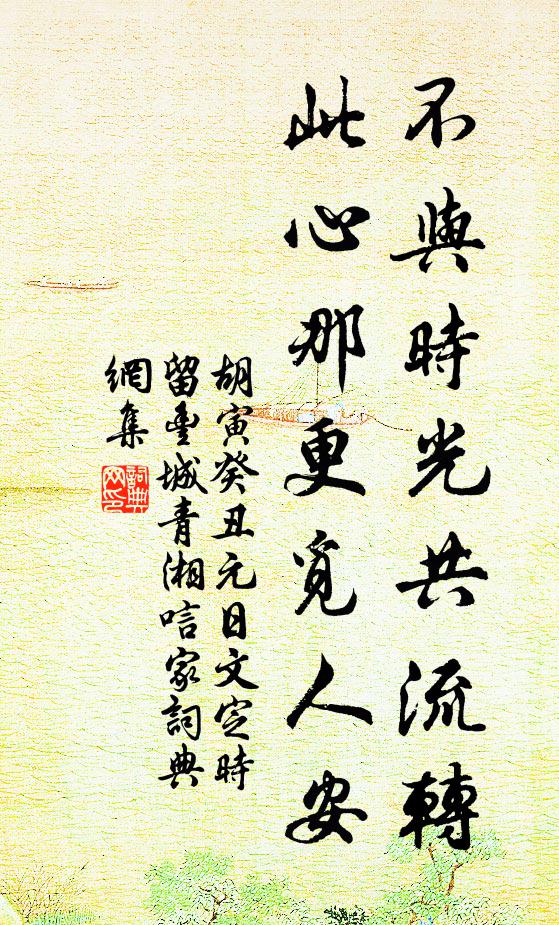 不與時光共流轉
此心那更覓人安
胡寅癸丑元日文定時
留豊城青湘唁家詞典
網集
詞典網印